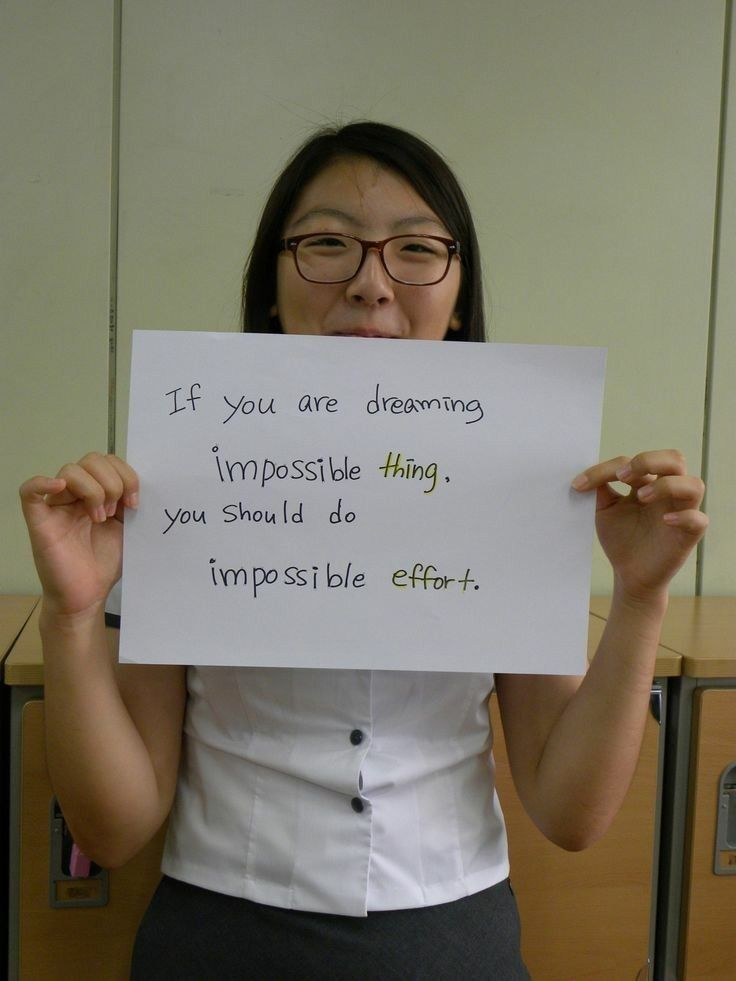 If you are dreaming
impossible thing.
you should do
impossible effort.